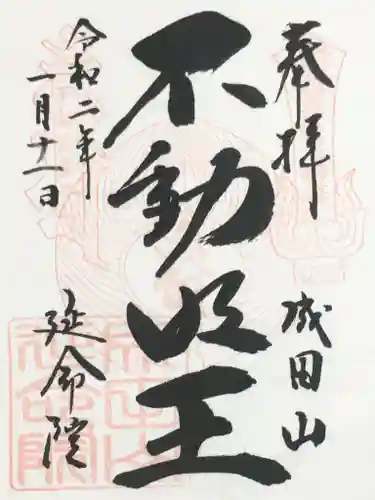 奉拝
成田山
不動明王
令和二年
一月十一日
延命院